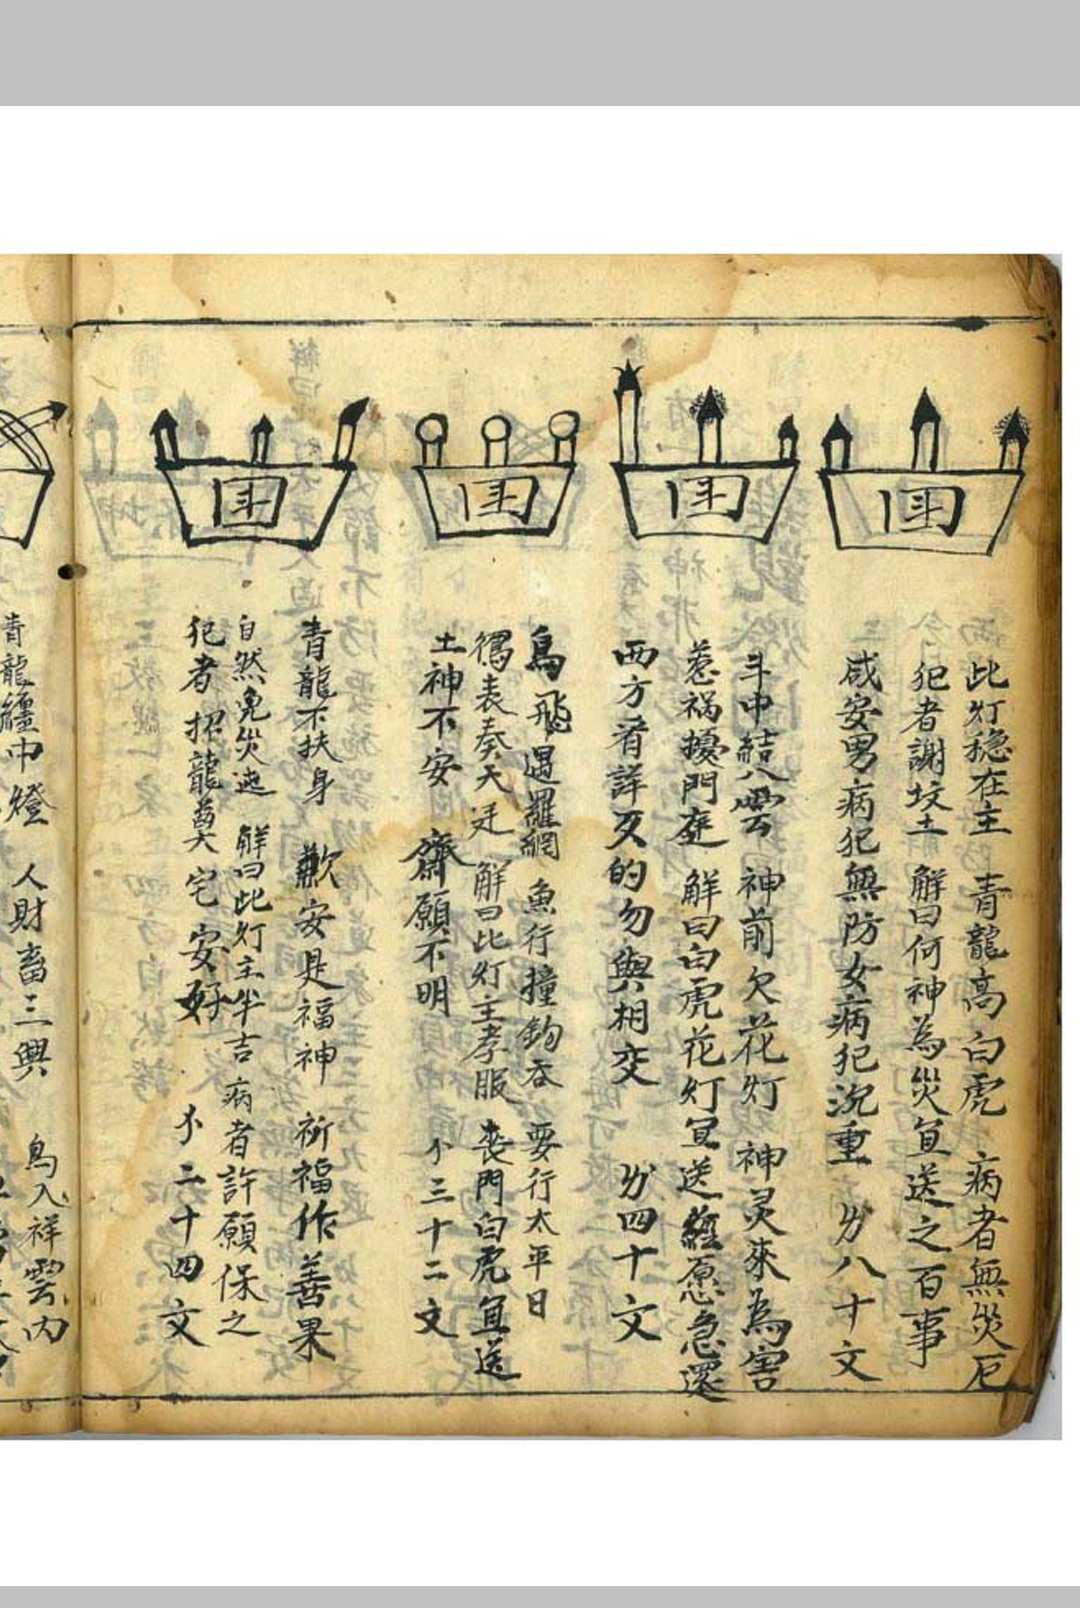 斗
斗
斗
斗
此灯稳在主 青龍高白虎 病者無災厄
犯者謝坟土 解曰何神為災宜送之百事
咸安男病犯無防女病犯沉重 分八十文
斗中結八雲 神前欠花灯 神灵來為害
惹祸擾門庭 解曰白虎花灯宜送 愿急還
西方看詳 的勿與相交 分四十文
鳥飛遇羅網 魚行撞鈎吞 要行太平日
表奏天廷 解曰此灯主孝服 喪門白虎宜送
土神不安 齋願不明 卜三十二文
青龍不扶身 歉安是福神 祈福作善果
自然免災迍 解曰此灯主半吉 病者許願保之
犯者招龍奠宅安好 卜二十四文
青龍纏巾燈 人財畜三興 鳥入祥雲内